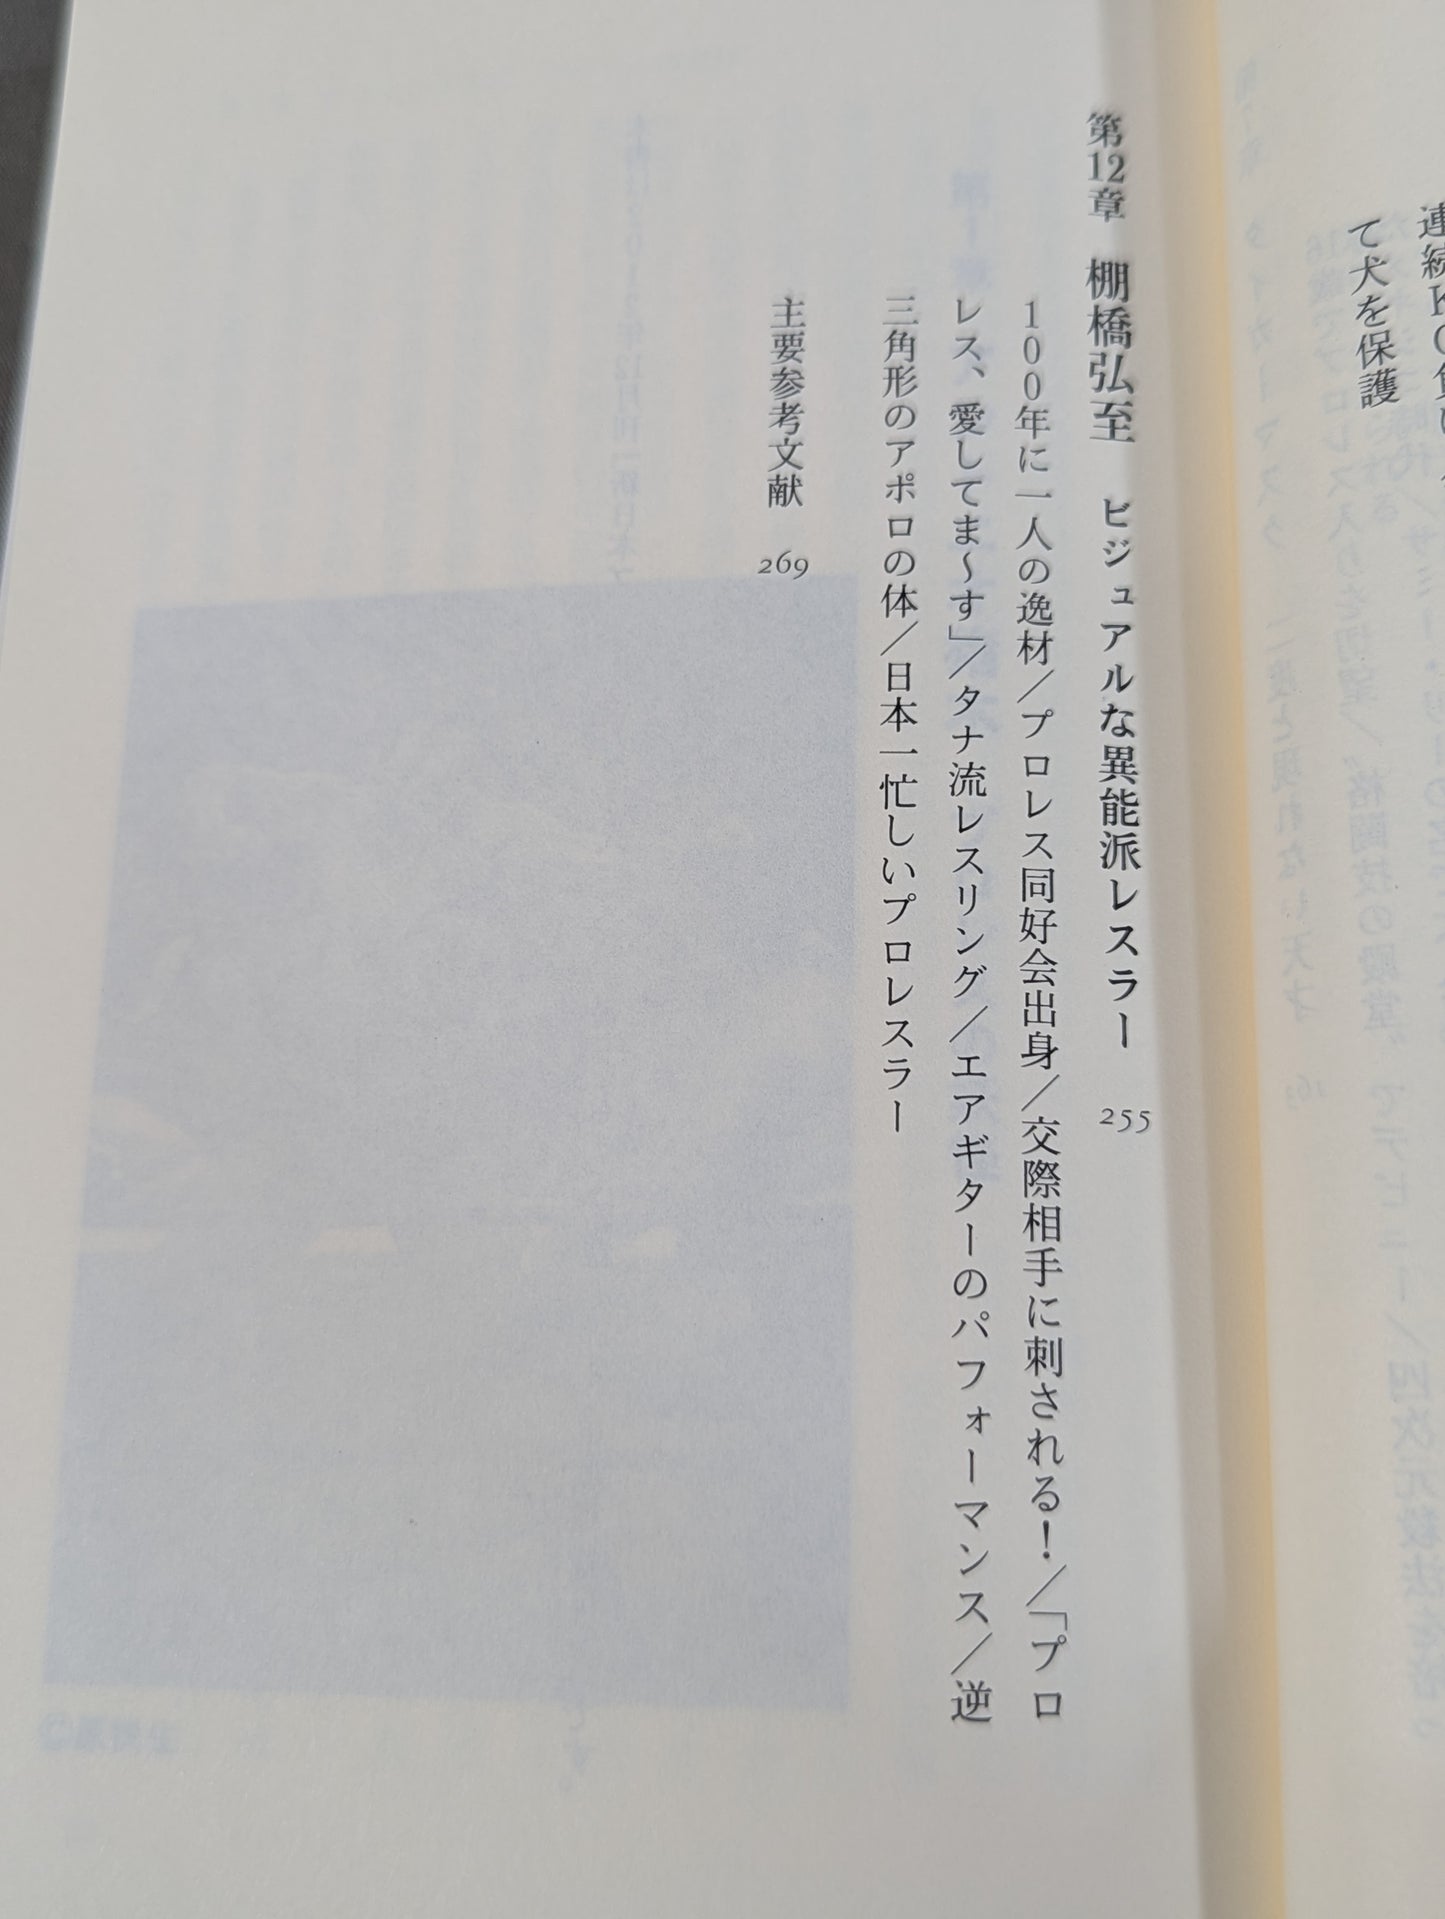 て犬を保護
第12章 棚橋弘至 ビジュアルな異能派レスラー 255
100年に一人の逸材／プロレス同好会出身／交際相手に刺される！／「プロ
レス、愛してま〜す」／タナ流レスリング／エアギターのパフォーマンス／逆
三角形のアポロの体／日本一忙しいプロレスラー
主要参考文献 269